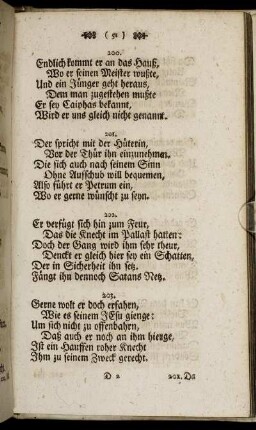 ( 51 )
200.
Endlich kommt er an das Hauß,
Wo er seinen Meister wußte,
Und ein Jünger geht heraus,
Dem man zugestehen mußte
Er sey Caiphas bekannt,
Wird er uns gleich nicht genannt.
201.
Der spricht mit der Hüterin,
Vor der Thür ihn einzunehmen,
Die sich auch nach seinem Sinn
Ohne Aufschub will bequemen,
Also führt er Petrum ein,
Wo er gerne wünscht zu seyn.
202.
Er verfügt sich hin zum Feur,
Das die Knecht im Pallast hatten:
Doch der Gang wird ihm sehr theur,
Denckt er gleich hier sey ein Schatten,
Der in Sicherheit ihn setz,
Fängt ihn dennoch Satans Netz.
203.
Gerne wolt er doch erfahren,
Wie es seinem JEsu gienge:
Um sich nicht zu offenbahrn,
Daß auch er noch an ihm hienge,
Ist ein Hauffen roher Knecht
Ihm zu seinem Zweck gerecht.
D 2